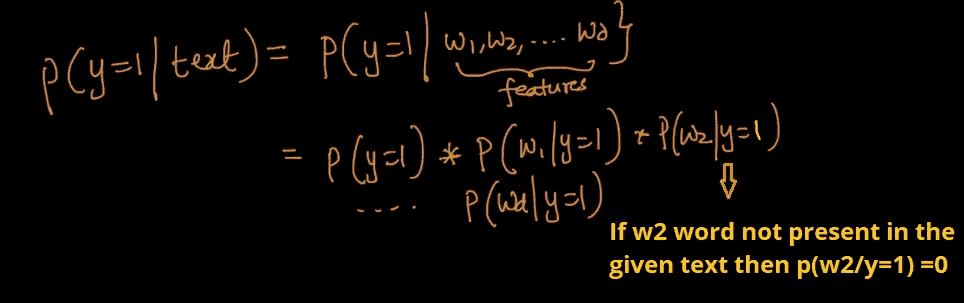 P(y=1|text) = P(y=1| w1,w2, .... wd}
features
= P(y=1) * P(w1|y=1) * P(w2|y=1)
.... P(wd|y=1)
If w2 word not present in the
given text then p(w2/y=1) =0